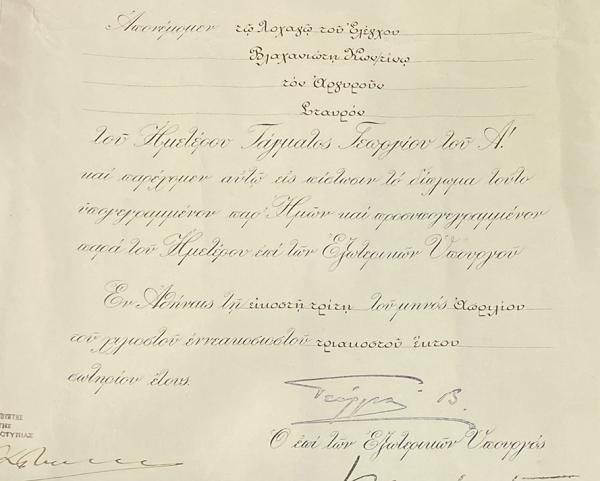 Ἀπονέμομεν τῷ Λοχαγῷ τοῦ Ἐλέγχου
Βλαχανιώτῃ Κων/τίνῳ
τὸν Ἀργυροῦν
Σταυρόν
τοῦ Ἡμετέρου Τάγματος Γεωργίου τοῦ Α'
καὶ παρέχομεν αὐτῷ εἰς πίστωσιν τὸ δίπλωμα τοῦτο
ὑπογεγραμμένον παρ' Ἡμῶν καὶ προσυπογεγραμμένον
παρὰ τοῦ Ἡμετέρου ἐπὶ τῶν Ἐξωτερικῶν Ὑπουργοῦ
Ἐν Ἀθήναις τῇ εἰκοστῇ τρίτῃ τοῦ μηνός Ἀπριλίου
τοῦ χιλιοστοῦ ἐννεακοσιοστοῦ τριακοστοῦ ἕκτου
σωτηρίου ἔτους.
Γεώργιος Β.
Ὁ ἐπὶ τῶν Ἐξωτερικῶν Ὑπουργός
ΤΗΣ